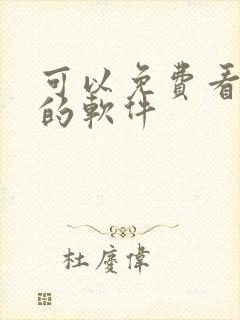 可以免費看
的軟件
杜慶偉